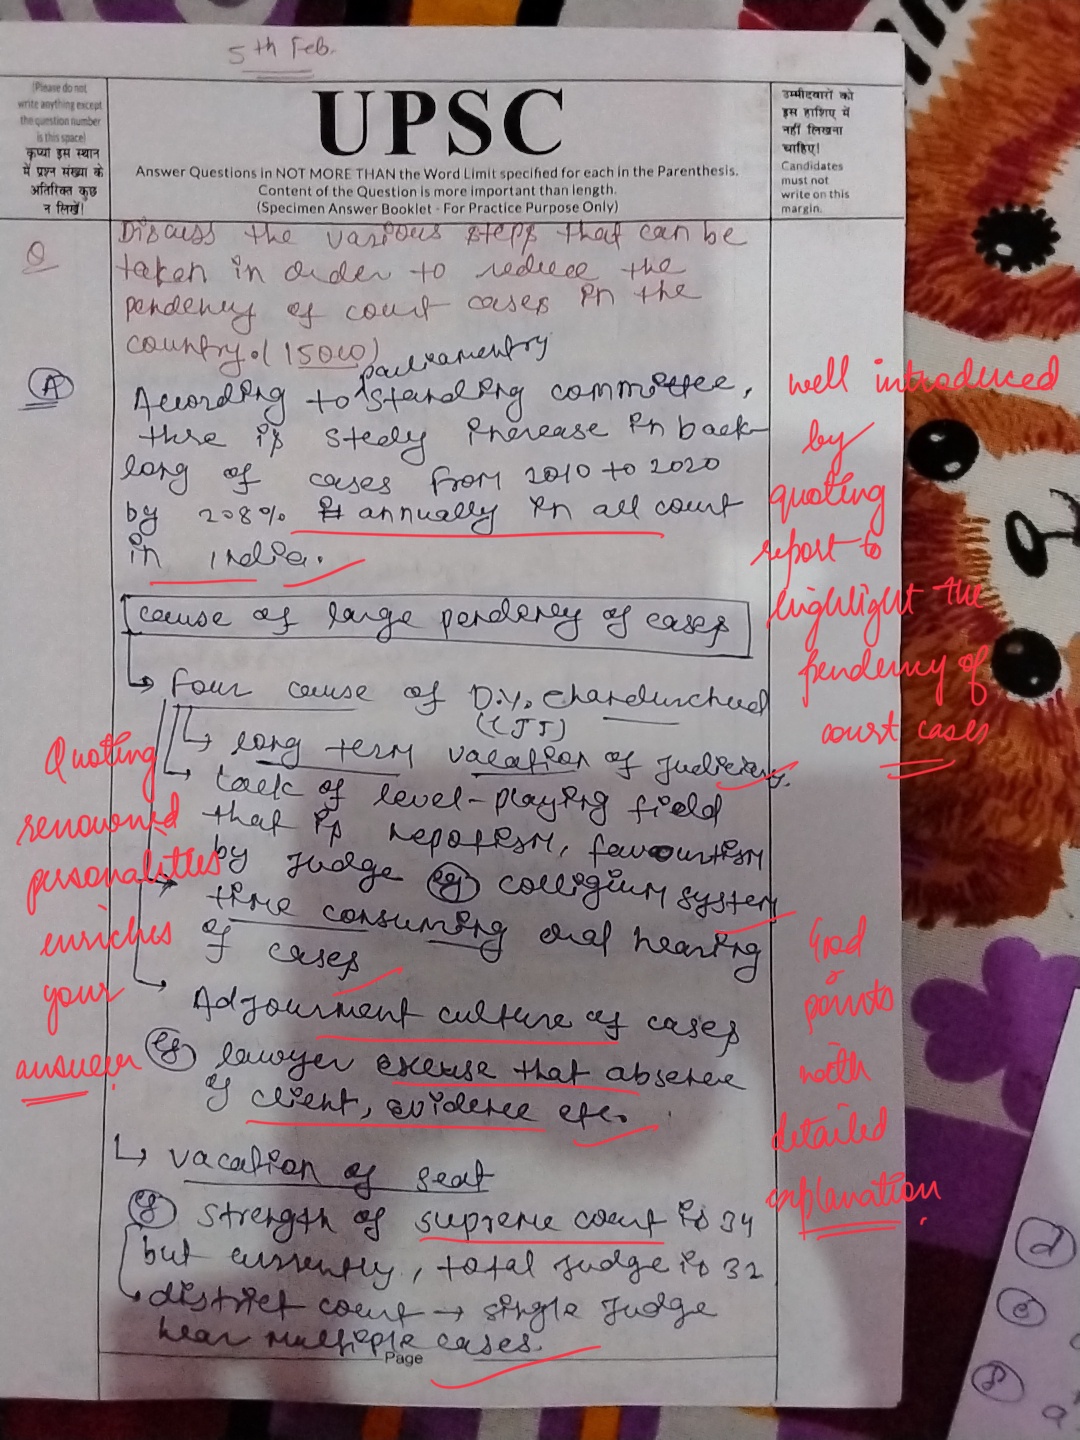 5th Feb.
(Please do not
write anything except
the question number
is this space)
कृप्या इस स्थान
में प्रश्न संख्या के
अतिरिक्त कुछ
न लिखें!
UPSC
Answer Questions in NOT MORE THAN the Word Limit specified for each in the Parenthesis.
Content of the Question is more important than length.
(Specimen Answer Booklet - For Practice Purpose Only)
उम्मीदवारों को
इस हाशिए में
नहीं लिखना
चाहिए!
Candidates
must not
write on this
margin.
Q
Discuss the various steps that can be
taken in order to reduce the
pendency of court cases in the
country. (150w)
A
parliamentry
According to ^ standing committee,
thre is steely increase in back-
long of cases from 2010 to 2020
by 2.8% annually in all court
in india.
cause of large pendency of cases
four cause of D.Y. Chandurchud
(CJI)
long term vacation of judiciary.
lack of level-playing field
that is nepotism, favourtism
by judge eg colligium system
time consuming oral hearing
of cases
Adjourment culture of cases
eg lawyer excuse that absence
of client, evidence etc.
vacation of seat
eg strength of supreme court is 34
but currently, total judge is 32
district court → single judge
hear multiple cases.
Page
well introduced
by
quoting
report to
highlight the
pendency of
court cases
Quoting
renowned
personalities
enriches
your
answer
Good
points
with
detailed
explanation.
d
e
f